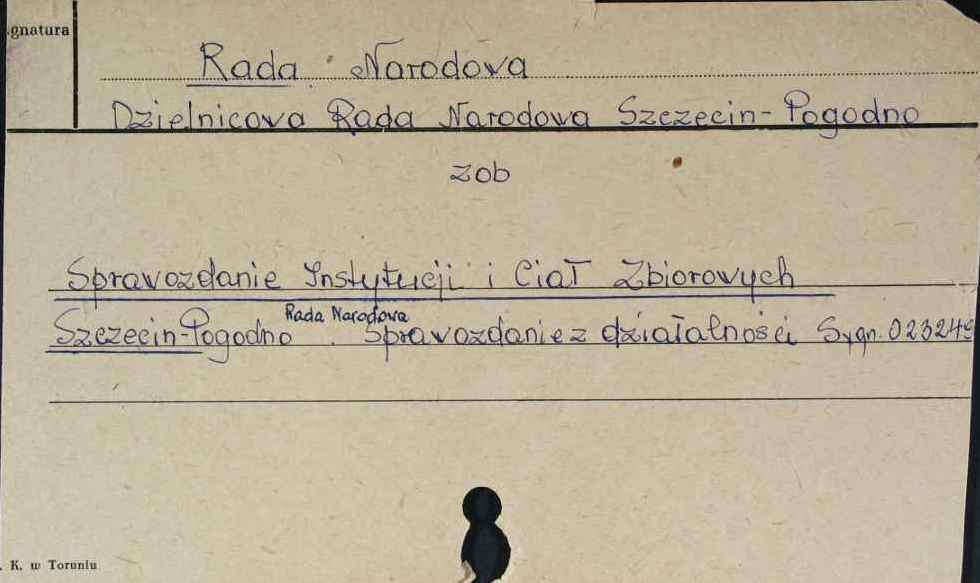 gnatura
Rada Narodowa
Dzielnicowa Rada Narodowa Szczecin-Pogodno
zob
Sprawozdanie Instytucji i Ciał Zbiorowych
Rada Narodowa
Szczecin-Pogodno . Sprawozdanie z działalności Sygn. 023249
. K. w Toruniu